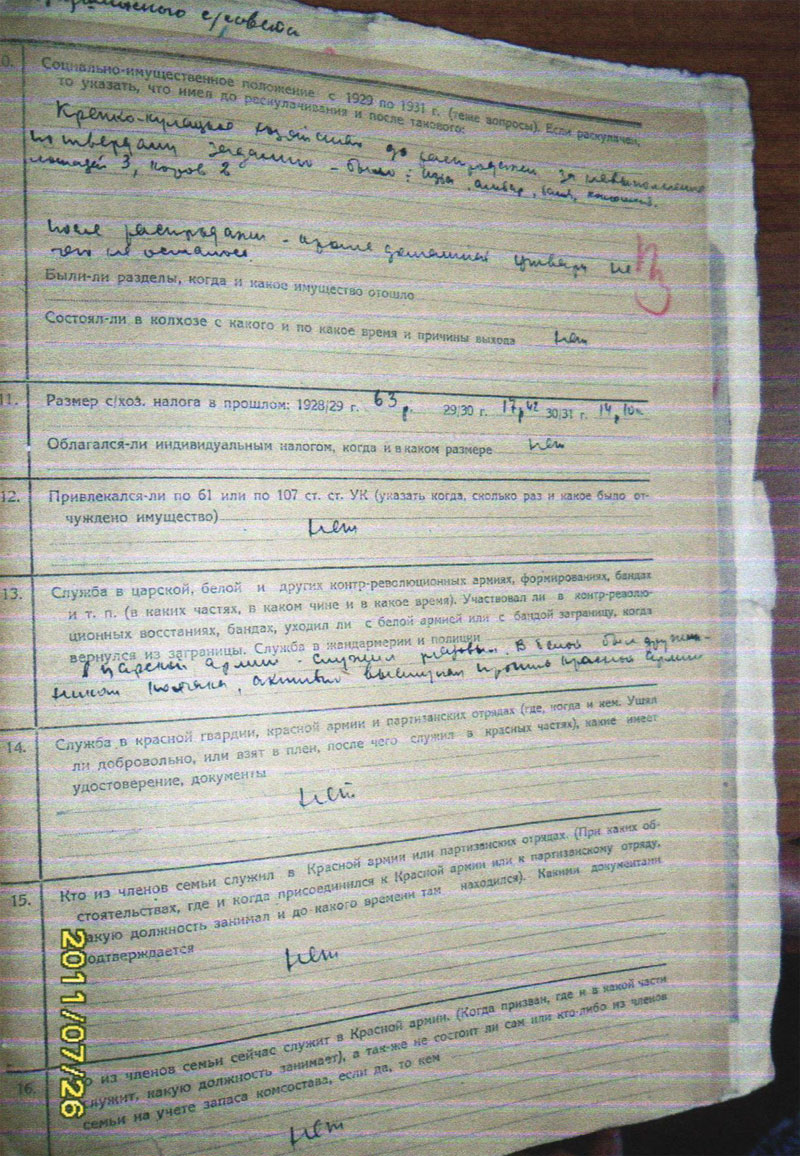 с/совета
10. Социально-имущественное положение с 1929 по 1931 г. (теже вопросы). Если раскулачен,
то указать, что имел до раскулачивания и после такового:
Крепко-кулацкое хозяйство до распродажи за невыполнение
твердого задания – было: изба, амбар, баня, конюшня.
лошадей 3, коров 2
после распродажи - кроме домашней утвари ни
чего не осталось.
Были-ли разделы, когда и какое имущество отошло
Состоял-ли в колхозе с какого и по какое время и причины выхода нет
11. Размер с/хоз. налога в прошлом: 1928/29 г. 63 р. 29/30 г. 17,42 30/31 г. 14,10к.
Облагался-ли индивидуальным налогом, когда и в каком размере нет
12. Привлекался-ли по 61 или по 107 ст. ст. УК (указать когда, сколько раз и какое было от-
чуждено имущество)
нет
13. Служба в царской, белой и других контр-революционных армиях, формированиях, бандах
и т. п. (в каких частях, в каком чине и в какое время). Участвовал ли в контр-револю-
ционных восстаниях, бандах, уходил ли с белой армией или с бандой заграницу, когда
вернулся из заграницы. Служба в жандармерии и полиции
В царской армии - служил рядовым. В белой был дружин-
ником Колчака, активно выступал против Красной армии
14. Служба в красной гвардии, красной армии и партизанских отрядах (где, когда и кем. Ушел
ли добровольно, или взят в плен, после чего служил в красных частях), какие имеет
удостоверение, документы
нет
15. Кто из членов семьи служил в Красной армии или партизанских отрядах. (При каких об-
стоятельствах, где и когда присоединился к Красной армии или к партизанскому отряду,
какую должность занимал и до какого времени там находился). Какими документами
подтверждается
нет
16. из членов семьи сейчас служит в Красной армии. (Когда призван, где и в какой части
служит, какую должность занимает), а так-же не состоит ли сам или кто-либо из членов
семьи на учете запаса комсостава, если да, то кем
нет
2011/07/26